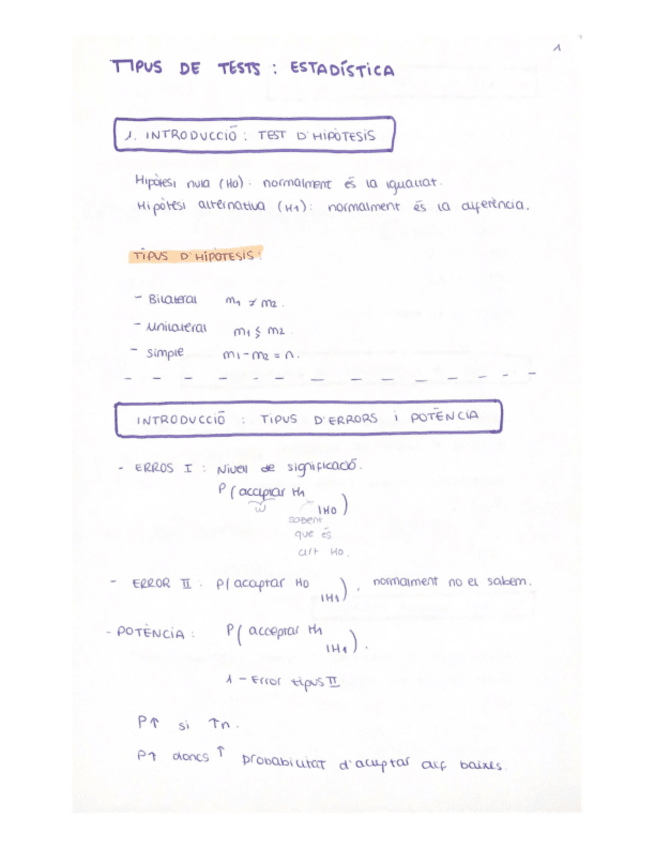 1
TIPUS DE TESTS : ESTADÍSTICA
1. INTRODUCCIÓ : TEST D'HIPÒTESIS
Hipòtesi nula (H0) : normalment és la igualtat.
Hipòtesi alternativa (H1) : normalment és la diferència.
TIPUS D'HIPOTESIS :
- Bilateral m1 ≠ m2.
- Unilateral m1 ≶ m2.
- Simple m1 - m2 = n.
INTRODUCCIÓ : TIPUS D'ERRORS i POTÈNCIA
- ERROS I : Nivell de significació.
P (acceptar H1 | H0)
sabent
que és
cert H0.
- ERROR II : P( acceptar H0 | H1) , normalment no el sabem.
- POTÈNCIA : P( acceptar H1 | H1).
1 - Error tipus II
P↑ si ↑n.
P↑ doncs ↑ probabilitat d'acceptar dif baixes.